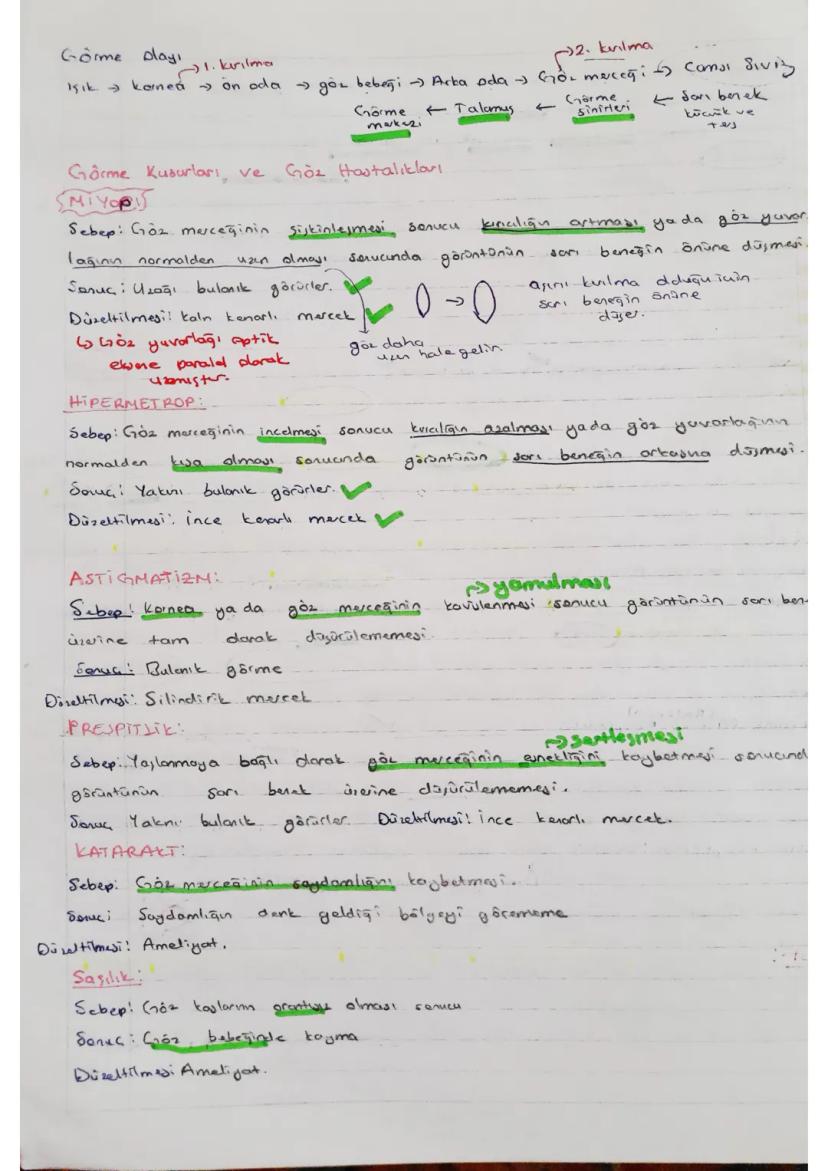 Görme olayı
→1. kırılma
→2. kırılma
Işık → kornea → ön oda → göz bebeği → Arka oda → Göz merceği → Camsı Sıvı
Görme merkezi ← Talamus ← Görme sinirleri ← Sarı benek
küçük ve ters
Görme Kusurları ve Göz Hastalıkları
MİYOPİ
Sebep: Göz merceğinin şişkinleşmesi sonucu kırıcılığın artması ya da göz yuvar
lağının normalden uzun olması sonucunda görüntünün sarı beneğin önüne düşmesi.
Sonuç: Uzağı bulanık görürler.
aşırı kırılma olduğu için
sarı beneğin önüne
düşer.
Düzeltilmesi: kalın kenarlı mercek
↳ Göz yuvarlağı optik
eksene paralel olarak
uzamıştır.
göz daha
uzun hale gelir.
HİPERMETROP:
Sebep: Göz merceğinin incelmesi sonucu kırıcılığın azalması yada göz yuvarlağının
normalden kısa olması sonucunda görüntünün sarı beneğin arkasına düşmesi.
Sonuç: Yakını bulanık görürler.
Düzeltilmesi: ince kenarlı mercek
ASTİGMATİZM:
→yamulması
Sebep: Kornea ya da göz merceğinin kavislenmesi sonucu görüntünün sarı ben
üzerine tam olarak düşürülememesi.
Sonuç: Bulanık görme
Düzeltilmesi: Silindirik mercek
PRESPİTLİK:
→sertleşmesi
Sebep: Yaşlanmaya bağlı olarak göz merceğinin esnekliğini kaybetmesi sonucund
görüntünün sarı benek üzerine düşürülememesi.
Sonuç Yakını bulanık görürler. Düzeltilmesi: İnce kenarlı mercek.
KATARAKT:
Sebep: Göz merceğinin saydamlığını kaybetmesi.
Sonuç: Saydamlığın denk geldiği bölgeyi görememe
Düzeltilmesi: Ameliyat.
Şaşılık:
Sebep: Göz kaslarının orantısız olması sonucu
Sonuç: Göz bebeğinde kayma
Düzeltilmesi Ameliyat.